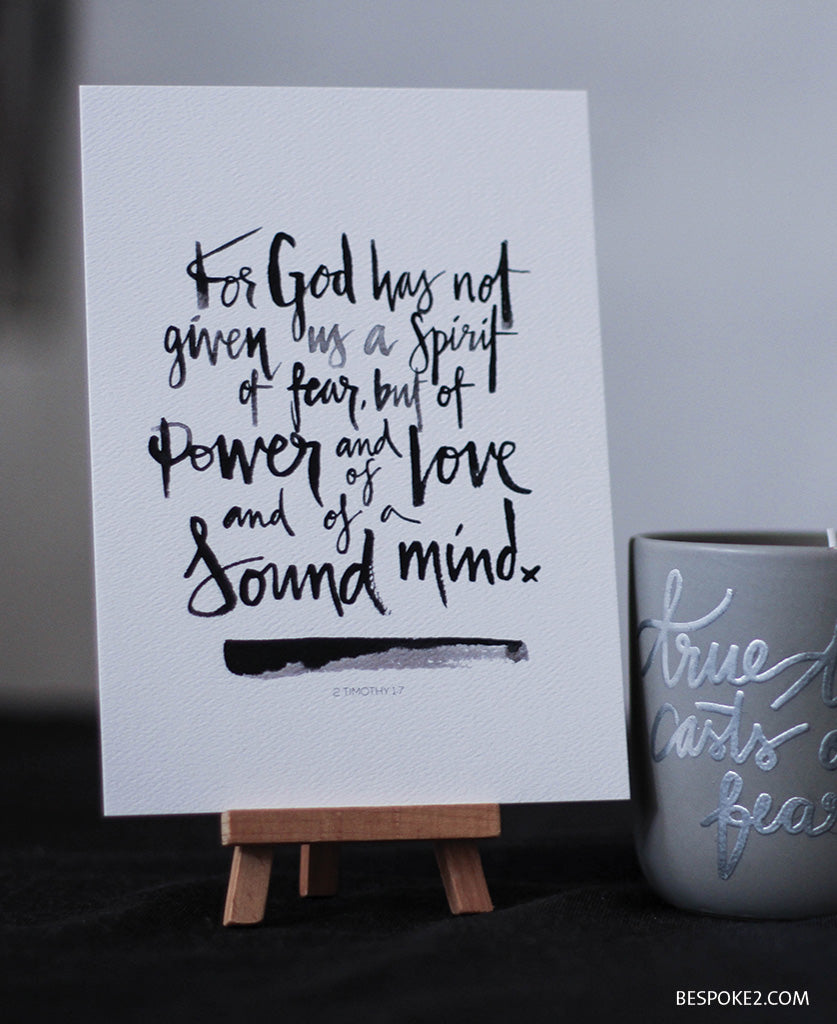 For God has not
given us a Spirit
of fear, but of
Power and of love
and of a
Sound mind.
2 TIMOTHY 1:7
true
casts
fear
BESPOKE2.COM